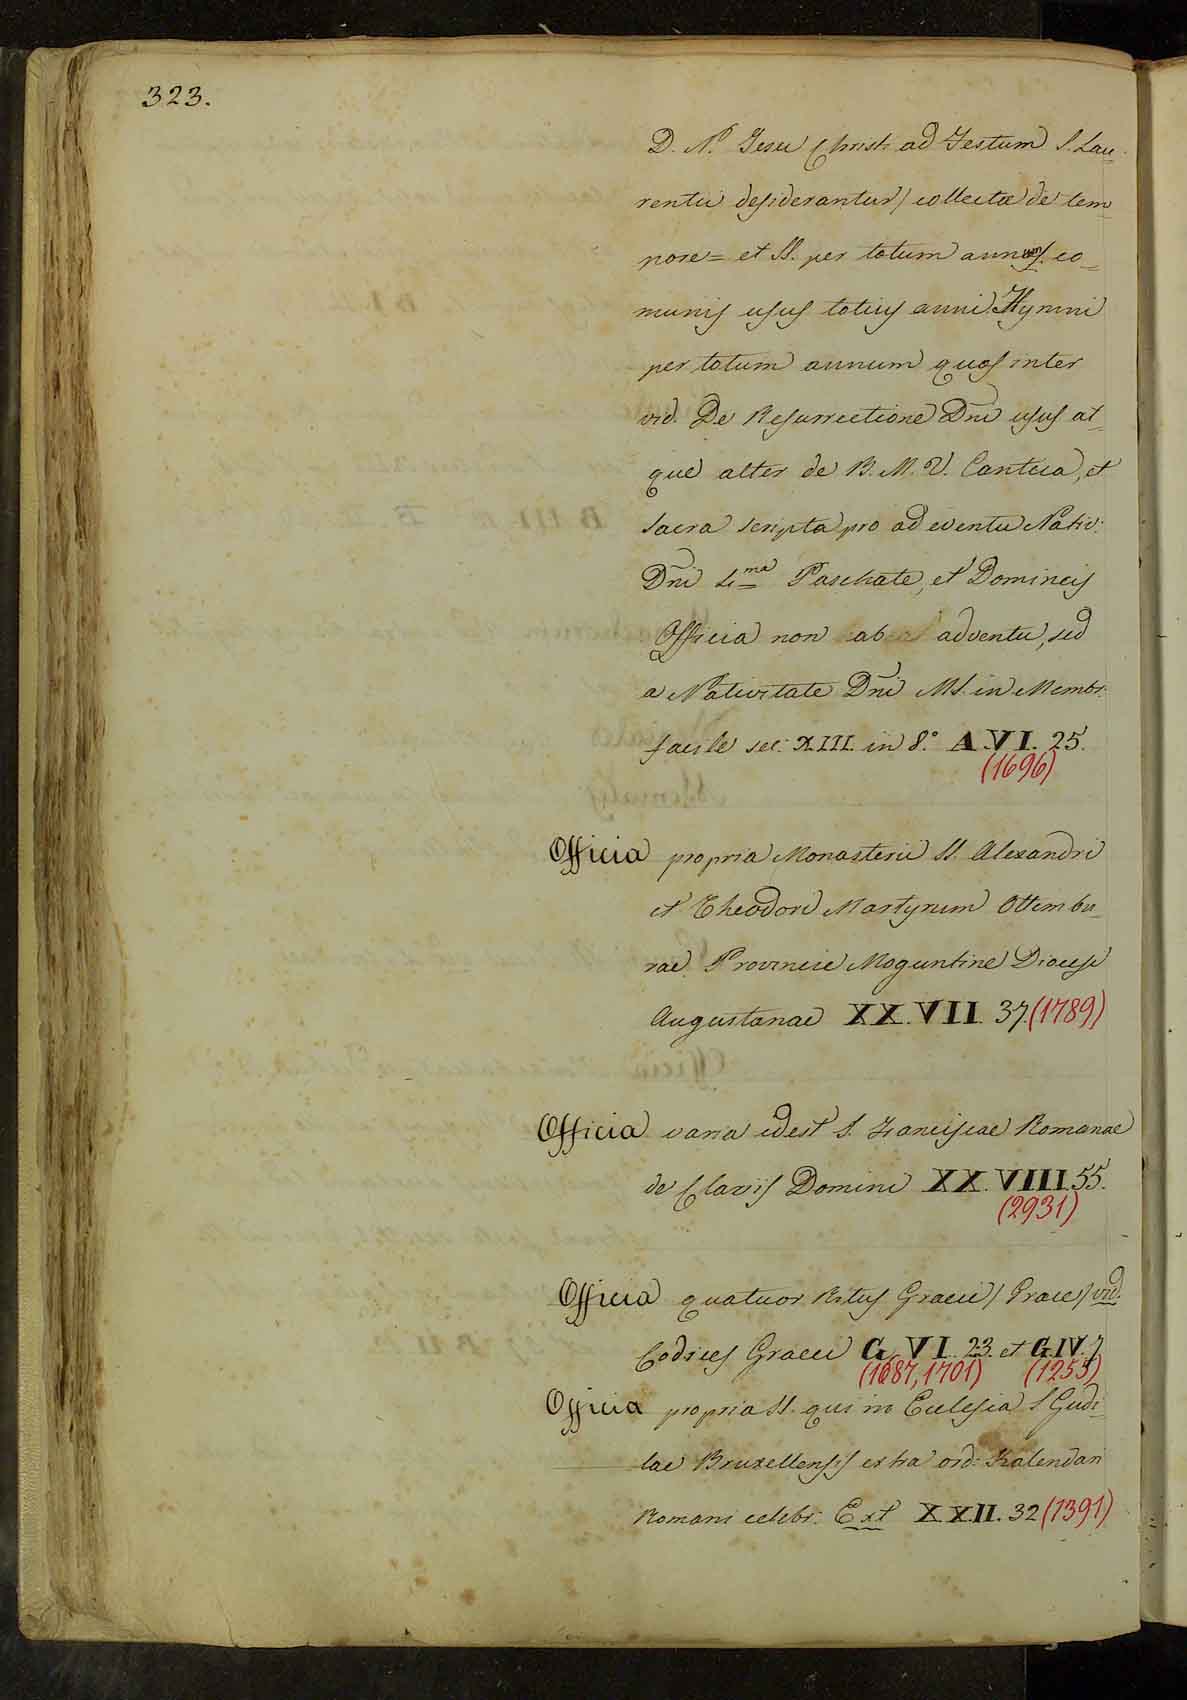 323.
D. N. Jesu Christi ad Festum S. Lau-
rentii desiderantur/ collectae de tem-
pore= et SS. per totum annum. co=
munis usus totius anni. Hymni
per totum annum quos inter
vid. De Resurrectione Dni usus at-
que alter de B. M. V. Cantica, et
sacra scripta pro adventu Nativ:
Dni 4ma Paschate, et Dominicis
Officia non ab adventu, sed
a Nativitate Dni MS. in Membr.
facile sec. XIII. in 8.º A. VI. 25.
(1696)
Officia propria Monasterii SS. Alexandri
et Theodori Martyrum Ottembu-
rae Provincie Moguntine Diocesi
Augustanae XX. VII. 37. (1789)
Officia varia idest S. Franciscae Romanae
de Clavis Domini XX. VIII. 55.
(2931)
Officia quatuor Ritus Graeci/ Graece/ vid.
Codices Graeci G. VI. 23. et G. IV. 7
(1687, 1701) (1255)
Officia propria SS. qui in Eclesia S Gudi-
lae Bruxellensis extra ord: Kalendari
Romani celebr. Ext XX.II. 32 (1391)